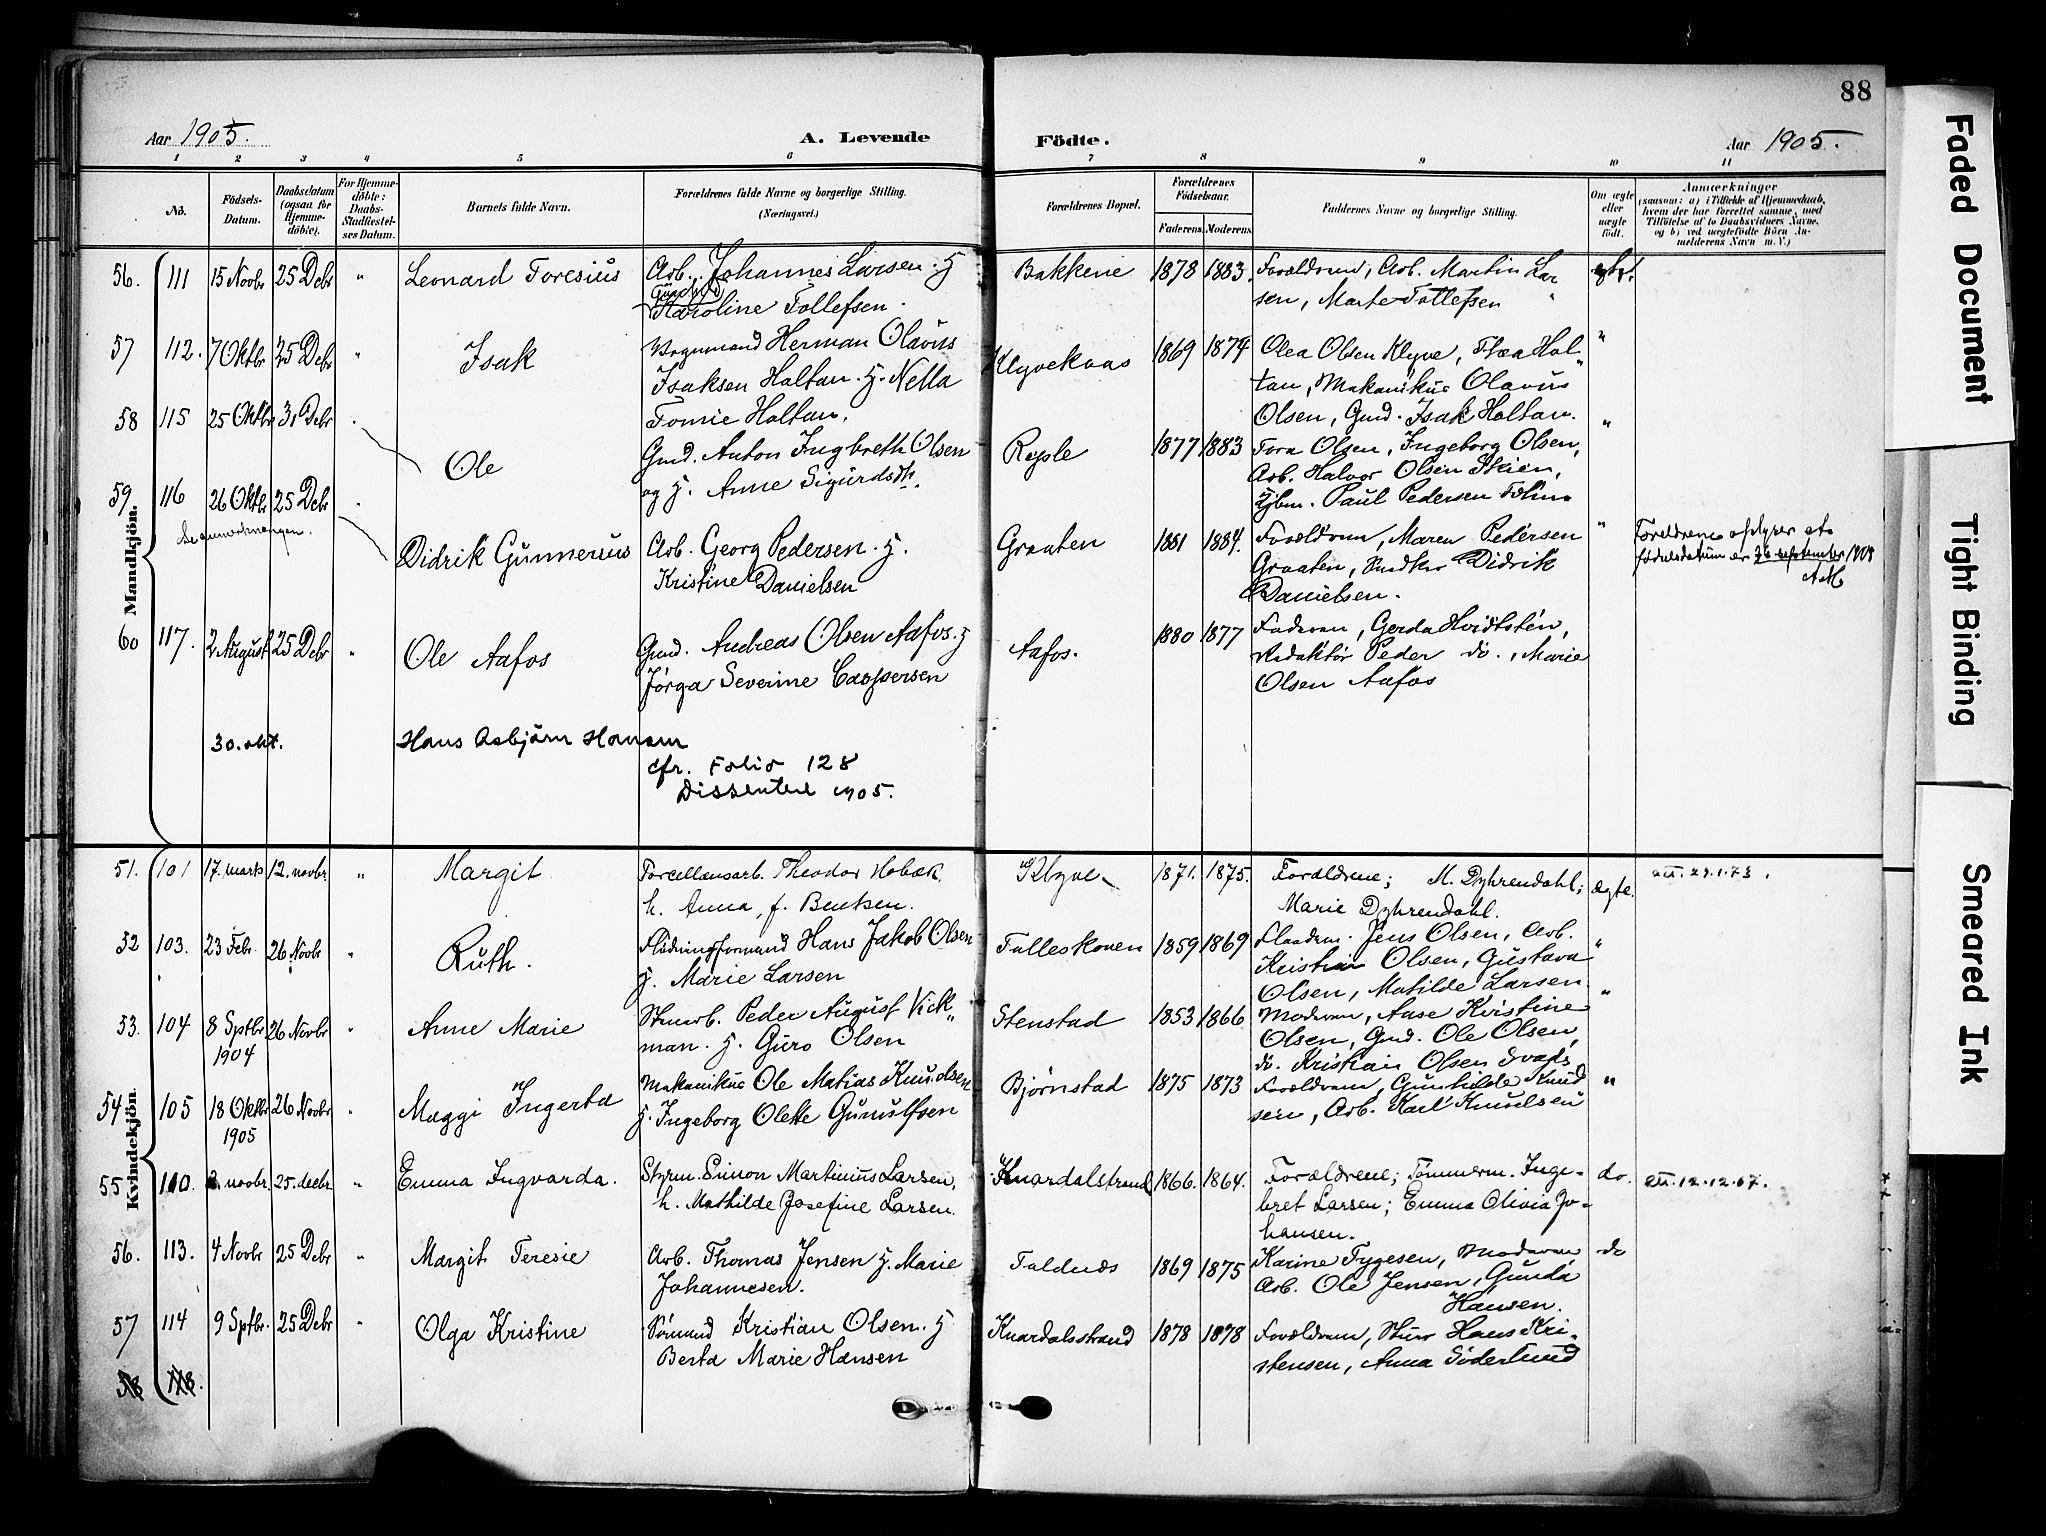 88
Aar 1905.
A. Levende
Födte.
Aar 1905.
1 2 3 4 5 6 7 8 9 10 11
No.
Födsels-Datum.
Daabsdatum (ogsaa for Hjemme-döbte).
For Hjemme-döbte: Daabs-Stadfæstel-ses Datum.
Barnets fulde Navn.
Forældrenes fulde Navne og borgerlige Stilling.
(Næringsvei.)
Forældrenes Bopæl.
Forældrenes Födselsaar.
Faderens. Moderens.
Faddernes Navne og borgerlige Stilling.
Om ægte eller uægte født.
Anmærkninger
(saasom: a) i Tilfælde af Hjemmedaab,
hvem der har forrettet samme, med
Tilføielse af to Daabsvidners Navne,
og b) ved uægtefødte Börn An-
melderens Navn m. V.)
Mandkjön.
56. 111 15 Novbr 25 Debr " Leonard Toresius Arb. Johannes Larsen. H. Bakkene 1878 1883. Forældrene, Arb. Martin Lar
Karoline Tollefsen. sen, Marte Tollefsen
57 112. 7 Oktbr 25 Debr " Isak Vognmand Herman Olavus Klyvekaas 1869 1874 Olea Olsen Klyve, Thea Hol- "
Isaksen Holtan. H. Nella tan, Mekanikus Olavus
Tomie Holtan. Olsen, Gmd. Isak Holtan.
58 115 25 Oktbr 31 Debr Ole Gmd. Anton Ingbreth Olsen 1877 1883 Tora Olsen, Ingeborg Olsen, "
og H. Anne Sigurdsdtr. Arb. Halvor Olsen Skien,
Paul Pedersen
59. 116 26 Oktbr 25 Debr Didrik Gunnerius Arb. Georg Pedersen. H. Graaten 1881 1884. Forældrene, Maren Pedersen "
Kristine Danielsen Graaten, Didrik
Danielsen.
Foreldrene oplyser at
fødselsdatum er 26 september 1905
60 117. 2 August 25 Debr " Ole Aafos Gmd. Andreas Olsen Aafos. H Aafos. 1880 1877 Faderen, Gerda Hvidtsten,
Jörga Severine Caspersen Redaktör Peder do., Marie
Olsen Aafos
30. okt. Hans Asbjørn Hansen
cfr. Folio 128
Dissentere 1905.
Kvindekjön.
51. 101 17. marts 12. novbr. " Margit Porcellænsarb. Theodor Hobæk, Klyve 1871. 1875. Forældrene; M. Dyhrendahl; ægte.
h. Anna, f. Bentsen. Marie Dyhrendahl.
att. 29.1.73.
52 103. 23 Febr. 26 Novbr " Ruth. Flödningsformand Hans Jakob Olsen Falleskoven 1859 1869 Jens Olsen, Arb. "
H. Marie Larsen Kristian Olsen, Gustava
Olsen, Matilde Larsen
53. 104 8 Sptbr 26 Novbr " Anne Marie Peder August Vick- Stenstad 1853 1866 Moderen, Aase Kristine "
1904 man. H. Guro Olsen Olsen, Gmd. Ole Olsen,
do. Kristian Olsen
54 105 18 Oktbr 26 Novbr Maggi Ingerta Mekanikus Ole Matias Knudsen Bjørnstad 1875 1873 Forældrene, Gunhilde Knud "
1905 H. Ingeborg Olette Gunulfsen sen, Arb. Karl Knudsen
55 110. novbr. 25. decbr " Emma Ingvarda. Styrm. Simon Martinius Larsen, Knardalstrand 1866. 1864. Forældrene; Tömmerm. Inge- do.
h. Mathilde Josefine Larsen. bret Larsen; Emma Olivia Jo-
hansen.
att. 12.12.67.
56. 113. 4 Novbr 25 Debr " Margit Teresie Arb. Thomas Jensen H. Marie Faldnes 1869 1875 Karine Tygesen, Moderen do
Johannesen. Arb. Ole Jensen, Gunda
Hansen.
57 114 9 Sptbr. 25 Debr " Olga Kristine Sömand Kristian Olsen. H Knardalsstrand 1878 1878 Forældrene, Hans Kri-
Berta Marie Hansen stensen, Anna Söderlund
58 118.
Faded Document
Tight Binding
Smeared Ink